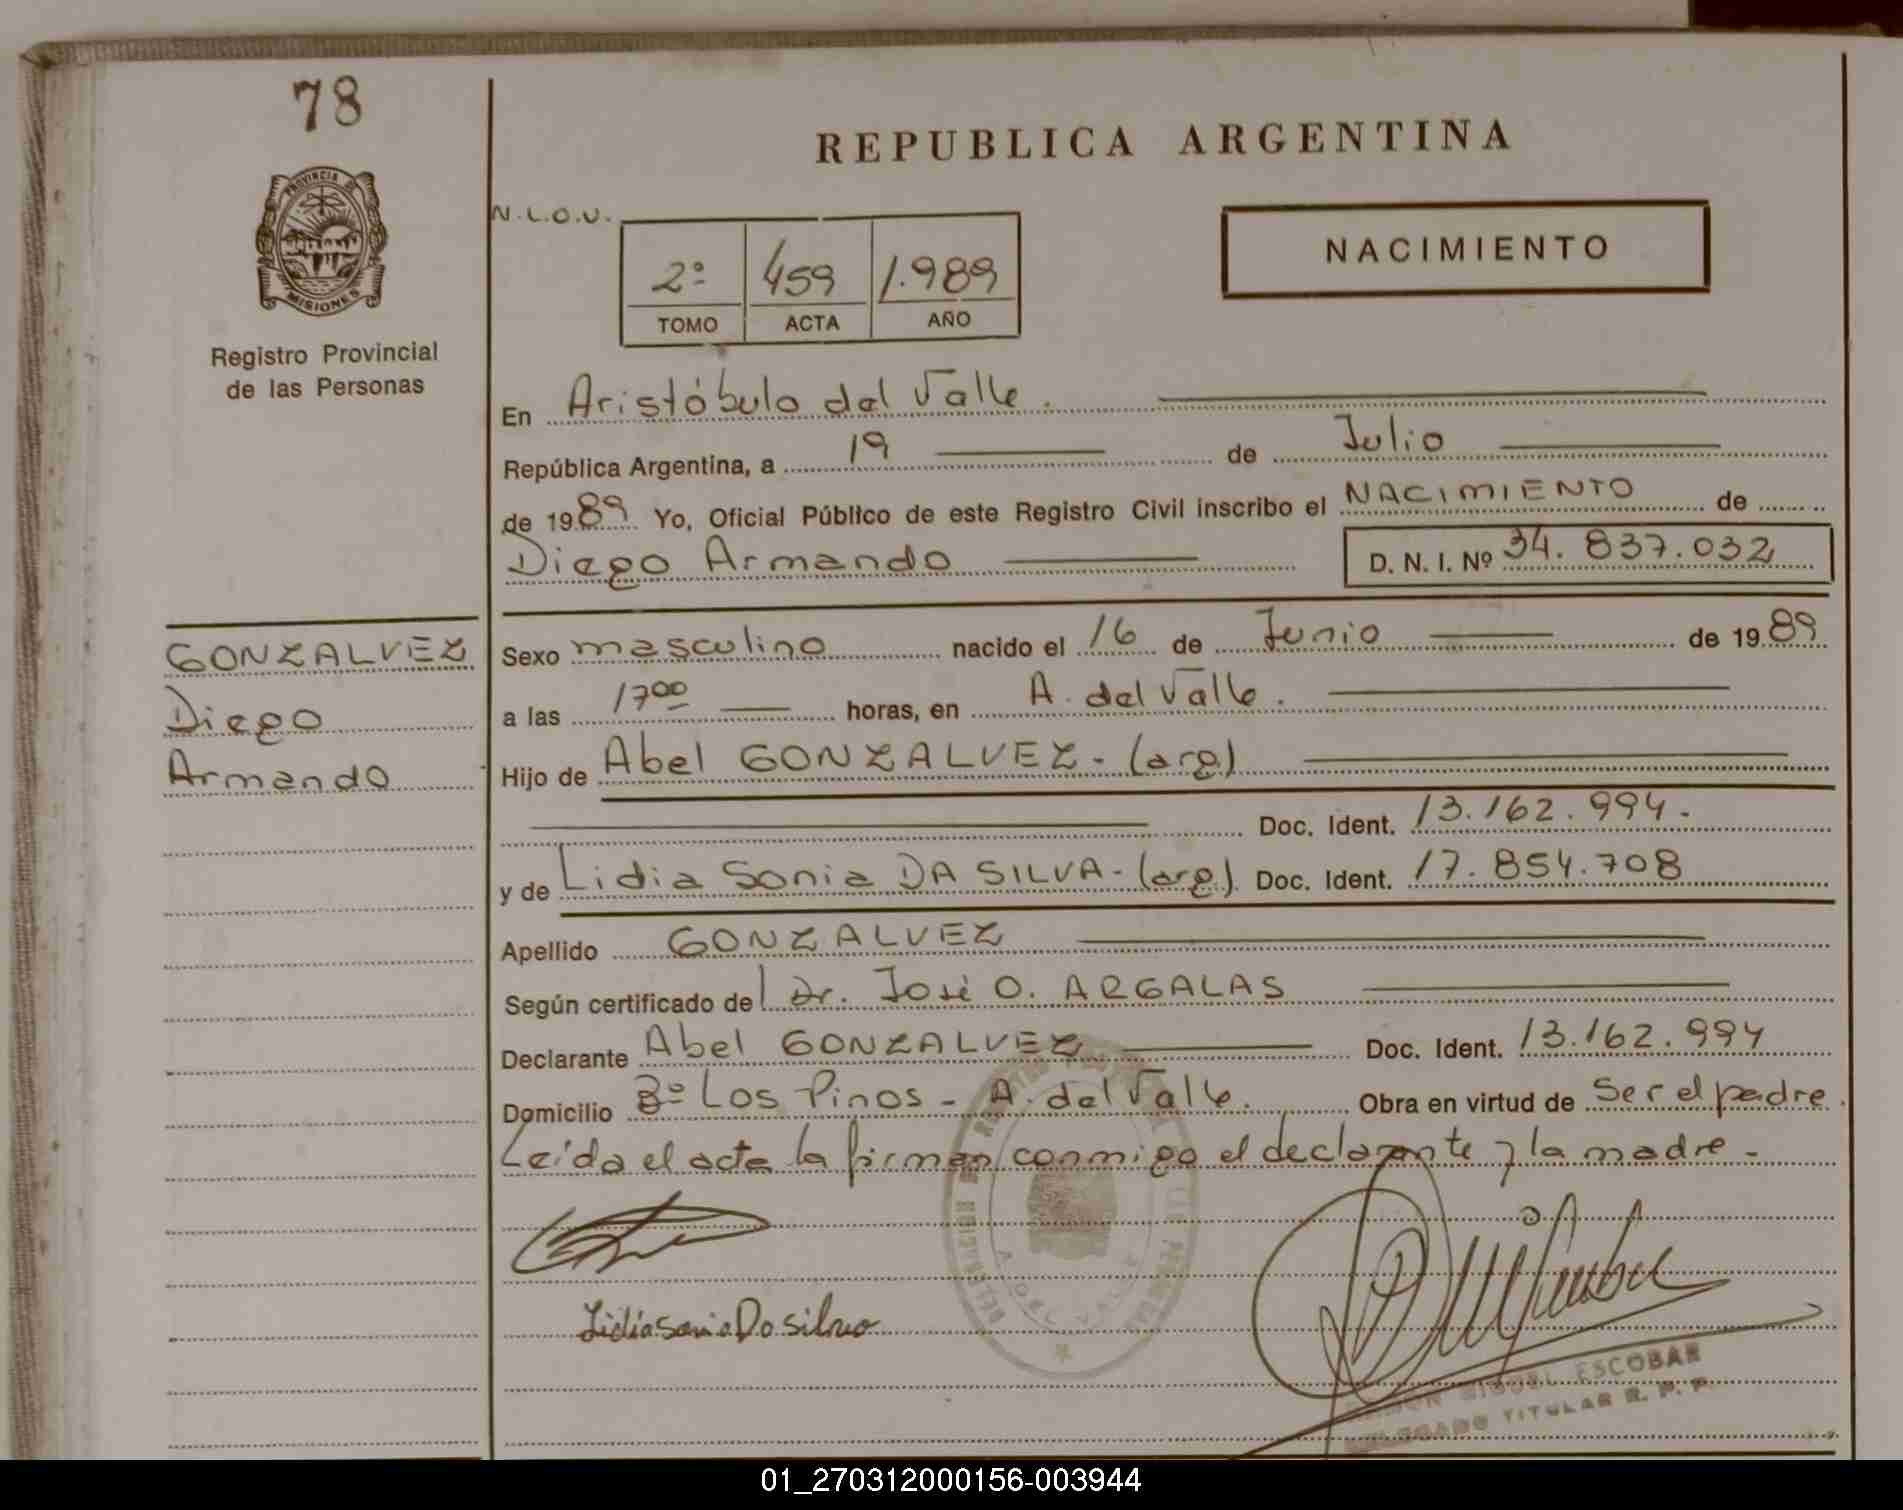 78
REPUBLICA ARGENTINA
PROVINCIA DE
MISIONES
Registro Provincial
de las Personas
N.L.O.U.
2º 459 1.989
TOMO ACTA AÑO
NACIMIENTO
En Aristóbulo del Valle.
República Argentina, a 19 de Julio
de 1989 Yo, Oficial Público de este Registro Civil inscribo el NACIMIENTO de
Diego Armando D. N. I. Nº 34.837.032
GONZALVEZ
Diego
Armando
Sexo masculino nacido el 16 de Junio de 1989
a las 1700 horas, en A. del Valle.
Hijo de Abel GONZALVEZ - (arg)
Doc. Ident. 13.162.994.
y de Lidia Sonia DA SILVA - (arg) Doc. Ident. 17.854.708
Apellido GONZALVEZ
Según certificado del Dr. José O. ARGALAS
Declarante Abel GONZALVEZ Doc. Ident. 13.162.994
Domicilio Bº Los Pinos - A. del Valle. Obra en virtud de Ser el padre.
Leída el acta la firman conmigo el declarante y la madre -
A. DEL VALLE
Lidia Sonia Da silva
MIGUEL ESCOBAR
DELEGADO TITULAR R. P. P.
01_270312000156-003944